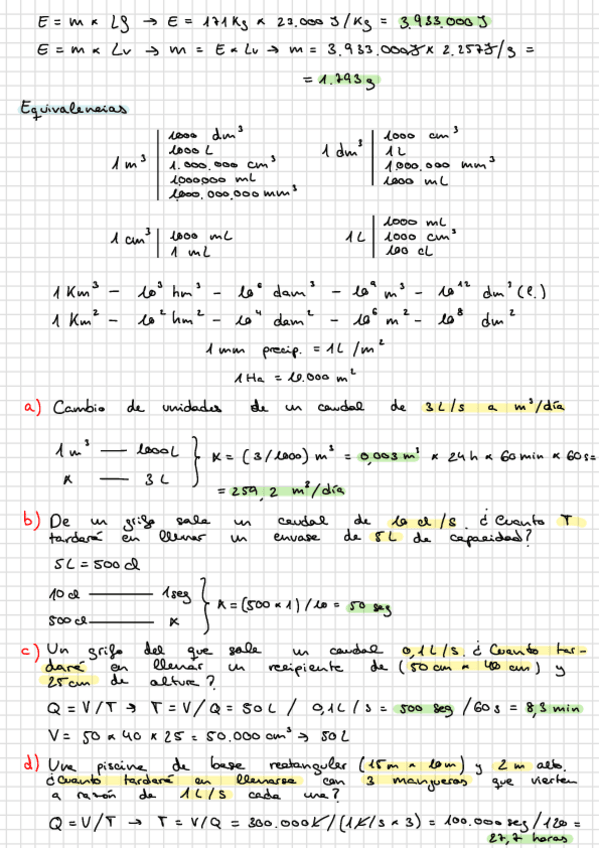 E = m × Lg → E = 171Kg × 23.000 J/Kg = 3.933.000 J
E = m × Lv → m = E × Lv → m = 3.933.000J × 2.257J/g =
= 1.793 g
Equivalencias
1 m³ | 1000 dm³
1000 L
1.000.000 cm³
1.000.000 mL
1.000.000.000 mm³
1 dm³ | 1000 cm³
1L
1.000.000 mm³
1000 mL
1 cm³ | 1000 mL
1 mL
1L | 1000 mL
1000 cm³
100 cL
1 Km³ - 10³ hm³ - 10⁶ dam³ - 10⁹ m³ - 10¹² dm³ (l.)
1 Km² - 10² hm² - 10⁴ dam² - 10⁶ m² - 10⁸ dm²
1 mm precip. = 1L /m²
1 Ha = 10.000 m²
a) Cambio de unidades de un caudal de 3L/s a m³/día
1 m³ — 1000L
x — 3 L
x = (3/1000) m³ = 0,003 m³ × 24 h × 60 min × 60s=
= 259,2 m³/día
b) De un grifo sale un caudal de 10 cl/s. ¿Cuanto T
tardará en llenar un envase de 5L de capacidad?
5L = 500 cl
10 cl — 1 seg
500 cl — x
x = (500 × 1) / 10 = 50 seg
c) Un grifo del que sale un caudal 0,1L/s. ¿Cuanto tar-
dará en llenar un recipiente de (50 cm × 40 cm) y
25 cm de altura?
Q = V/T → T = V/Q = 50 L / 0,1L / s = 500 seg /60 s = 8,3 min
V = 50 × 40 × 25 = 50.000 cm³ → 50L
d) Una piscina de base rectangular (15m × 10m) y 2 m alto.
¿Cuanto tardará en llenarse con 3 mangueras que vierten
a razón de 1L/s cada una?
Q = V/T → T = V/Q = 300.000L / (1L/s × 3) = 100.000 seg / 120 =
27,7 horas